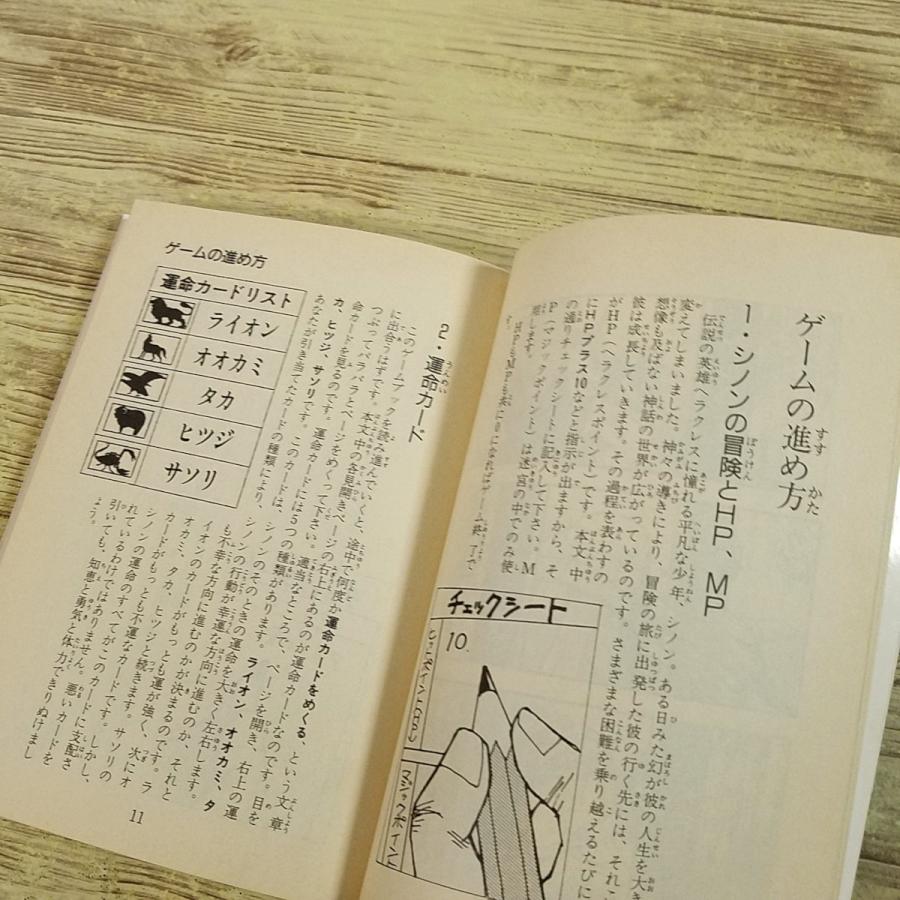 ゲームの進め方
1・シノンの冒険とHP、MP
伝説の英雄ヘラクレスに憧れる平凡な少年、シノン。ある日みた幻が彼の人生を大き
変えてしまいました。神々の導きにより、冒険の旅に出発した彼の行く先には、それこ
想像も及ばない神話の世界が広がっているのです。さまざまな困難を乗り越えるたびに
彼は成長していきます。その過程を表わすの
がHP（ヘラクレスポイント）です。本文中
にHPプラス10などと指示が出ますから、そ
の通りチェックシートに記入して下さい。M
P（マジックポイント）は迷宮の中でのみ使
用します。
HPもMPも共に0になればゲーム終了で、
チェックシート
10.
マジックポイン
ゲームの進め方
運命カードリスト
ライオン
オオカミ
タカ
ヒツジ
サソリ
2・運命カード
このゲームブックを読み進んでいくと、途中で何度か運命カードをめくる、という文章
に出合うはずです。本文中の各見開きページの右上にあるのが運命カードなのです。目を
つぶってパラパラとページをめくって下さい。適当なところで、ページを開き、右上の運
命カードを見るのです。運命カードには5つの種類があります。ライオン、オオカミ、タ
カ、ヒツジ、サソリです。このカードは、
あなたが引き当てたカードの種類により、
シノンのそのときの運命を大きく左右します。
シノンの行動が幸運な方向に進むのか、それと
も不幸な方向に進むのかが決まるのです。ラ
イオンのカードがもっとも運が強く、次にオ
オカミ、タカ、ヒツジと続きます。サソリの
カードがもっとも不運なカードです。しかし、
シノンの運命のすべてがこのカードに支配さ
れているわけではありません。悪いカードを
引いても、知恵と勇気と体力できりぬけまし
ょう。
11